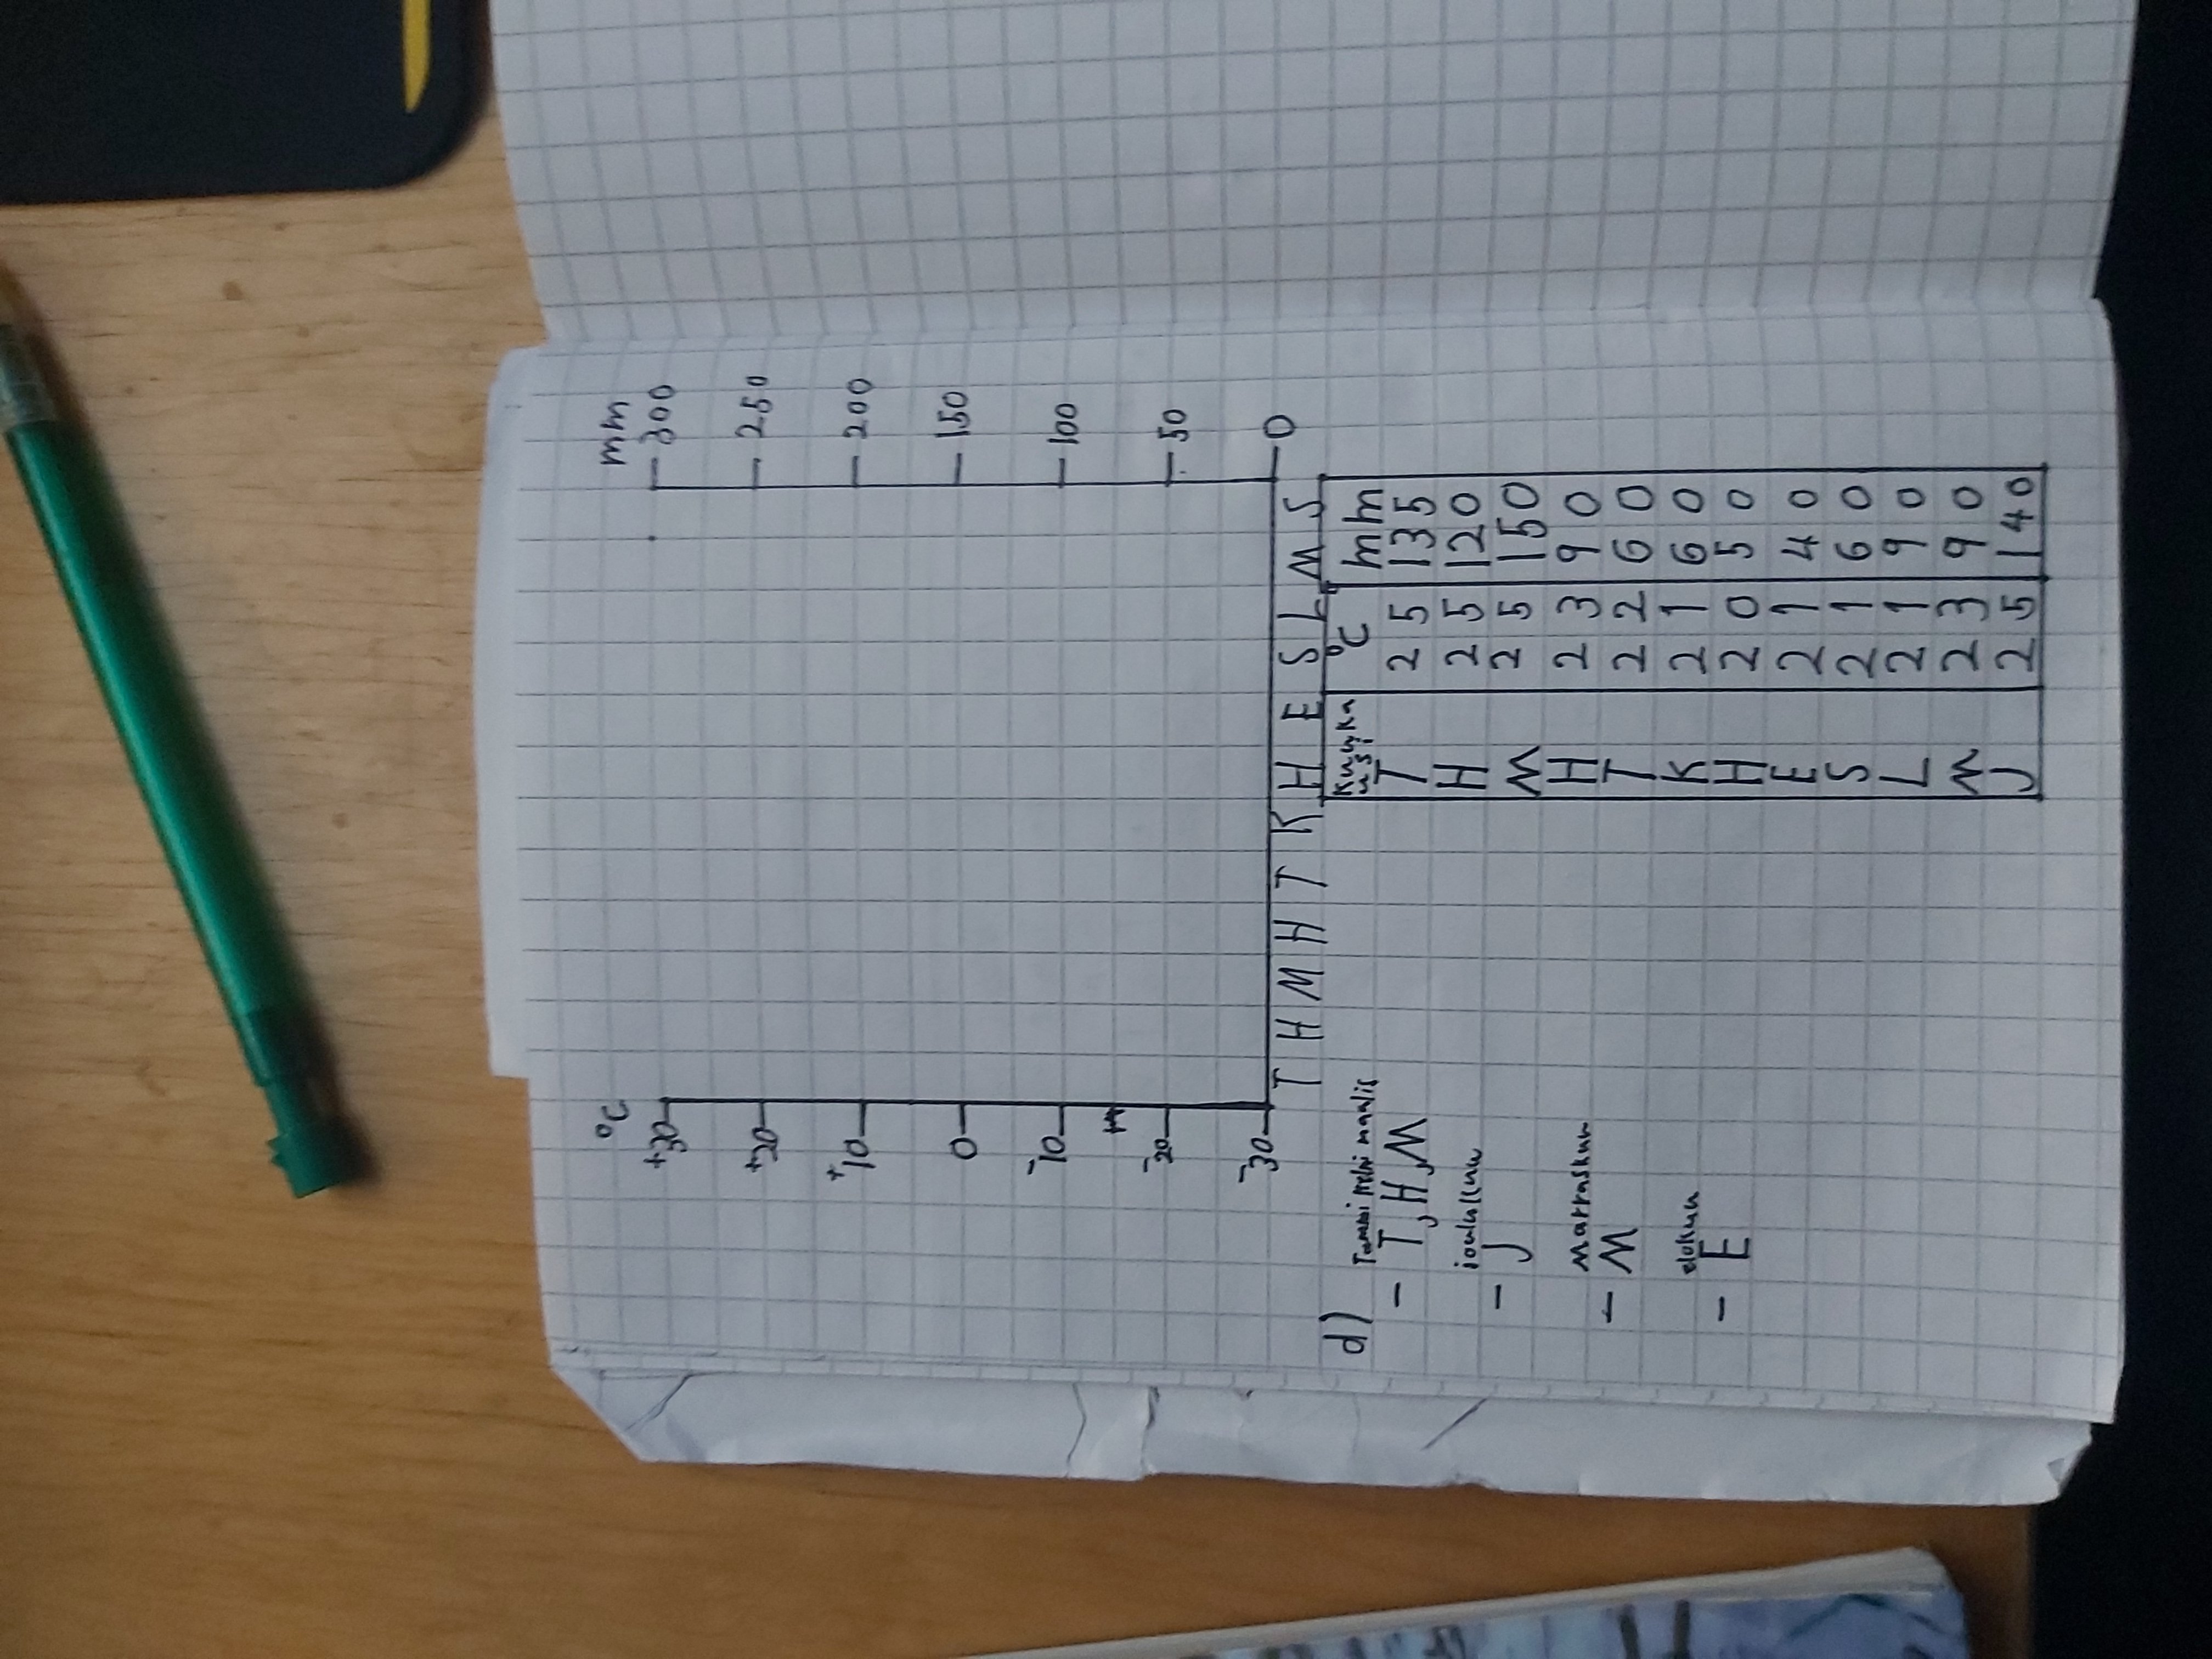 °C mm
+30 300
+20 250
+10 200
0 150
-10 100
-20 50
-30 0
T H M H T K H E S L M S
d)
Kuukausi °C mm
T 25 135
H 25 120
M 25 150
H 23 90
T 22 60
K 21 60
H 20 50
E 21 40
S 21 60
L 21 90
M 23 90
J 25 140
- T, H, M
joulukuu
- J
marraskuu
- M
elokuu
- E